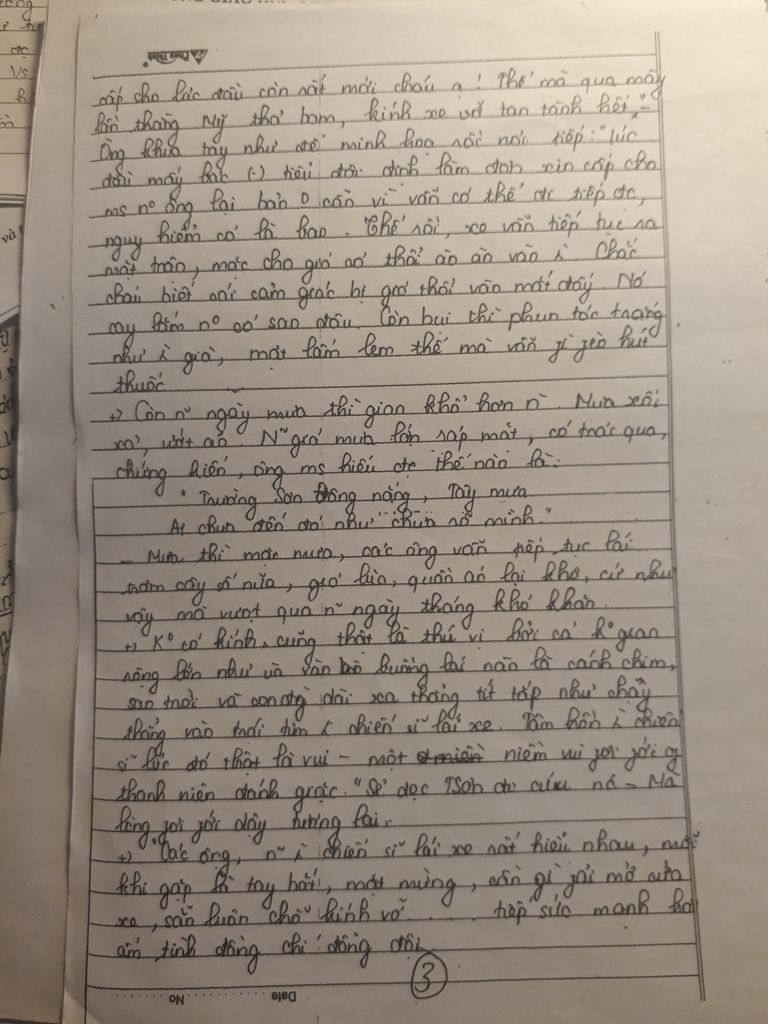 cấp cho lúc đầu còn rất mới cháu ạ! Thế mà qua mấy
lần thằng Mỹ thả bom, kính xe vỡ tan tành hết."
Ông khua tay như để minh hoạ rồi nói tiếp: "Lúc
đầu mấy bác (-) tiểu đội định làm đơn xin cấp cho
ms nº ông lại bảo 0 cần vì vẫn có thể đc tiếp đc,
nguy hiểm có là bao. Thế rồi, xe vẫn tiếp tục ra
mặt trận, mặc cho gió cứ thổi ào ào vào. Chắc
cháu biết rõi cảm giác bị gió thổi vào mắt đấy. Nó
cay lắm nº có sao đâu. Còn bụi thì phun tóc trắng
như ì già, mặt lấm lem thế mà vẫn jì jèo hút
thuốc
+) Còn n~ ngày mưa thì gian khổ hơn n`. Mưa xối
xả, ướt áo. N~ gió mưa lớn ráp mặt, có trải qua,
chứng kiến, ông ms hiểu đc thế nào là:
"Trường Sơn Đông nắng, Tây mưa
Ai chưa đến đó như chưa rõ mình."
- Mưa thì mặc mưa, các ông vẫn tiếp tục lái
trăm cây số nữa, gió lùa, quần áo lại khô, cứ như
vậy mà vượt qua n~ ngày tháng khó khăn.
+) Kº có kính, cũng thật là thú vị bởi cả kº gian
rộng lớn như ùa vào buồng lái nào là cánh chim,
sao trời và con đg dài xa thẳng tít tắp như chạy
thẳng vào trái tim ì chiến sĩ lái xe. Tâm hồn ì chiến
sĩ lúc đó thật là vui - một niềm vui jơi jới cg
thanh niên đánh giặc. "Sẻ dọc TSơn đi cứu nc - Mà
lòng jơi jới dậy tương lai.
+) Các ông, n~ ì chiến sĩ lái xe rất hiểu nhau, mỗi
khi gặp là tay bắt, mặt mừng, cần gì jải mở cửa
xe, sẵn luôn chỗ kính vỡ ..... tiếp sức mạnh hơi
ấm tình đồng chí đồng đội.
3
Date ........ No